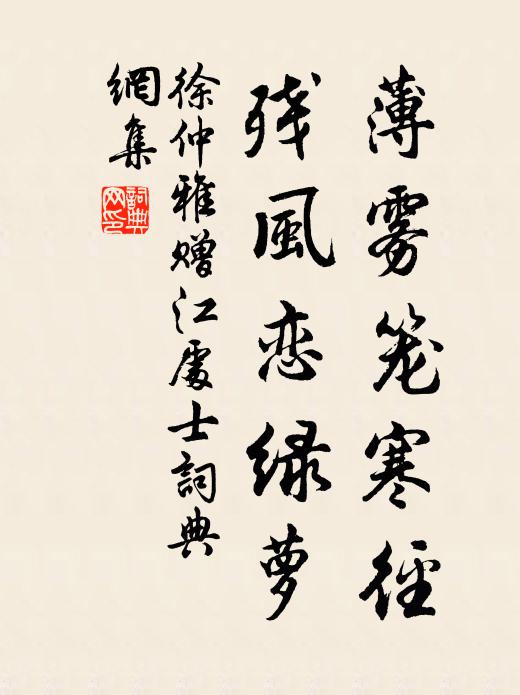 薄雾笼寒径
残風恋绿萝
徐仲雅赠江處士詞典
網集
詞典
网印